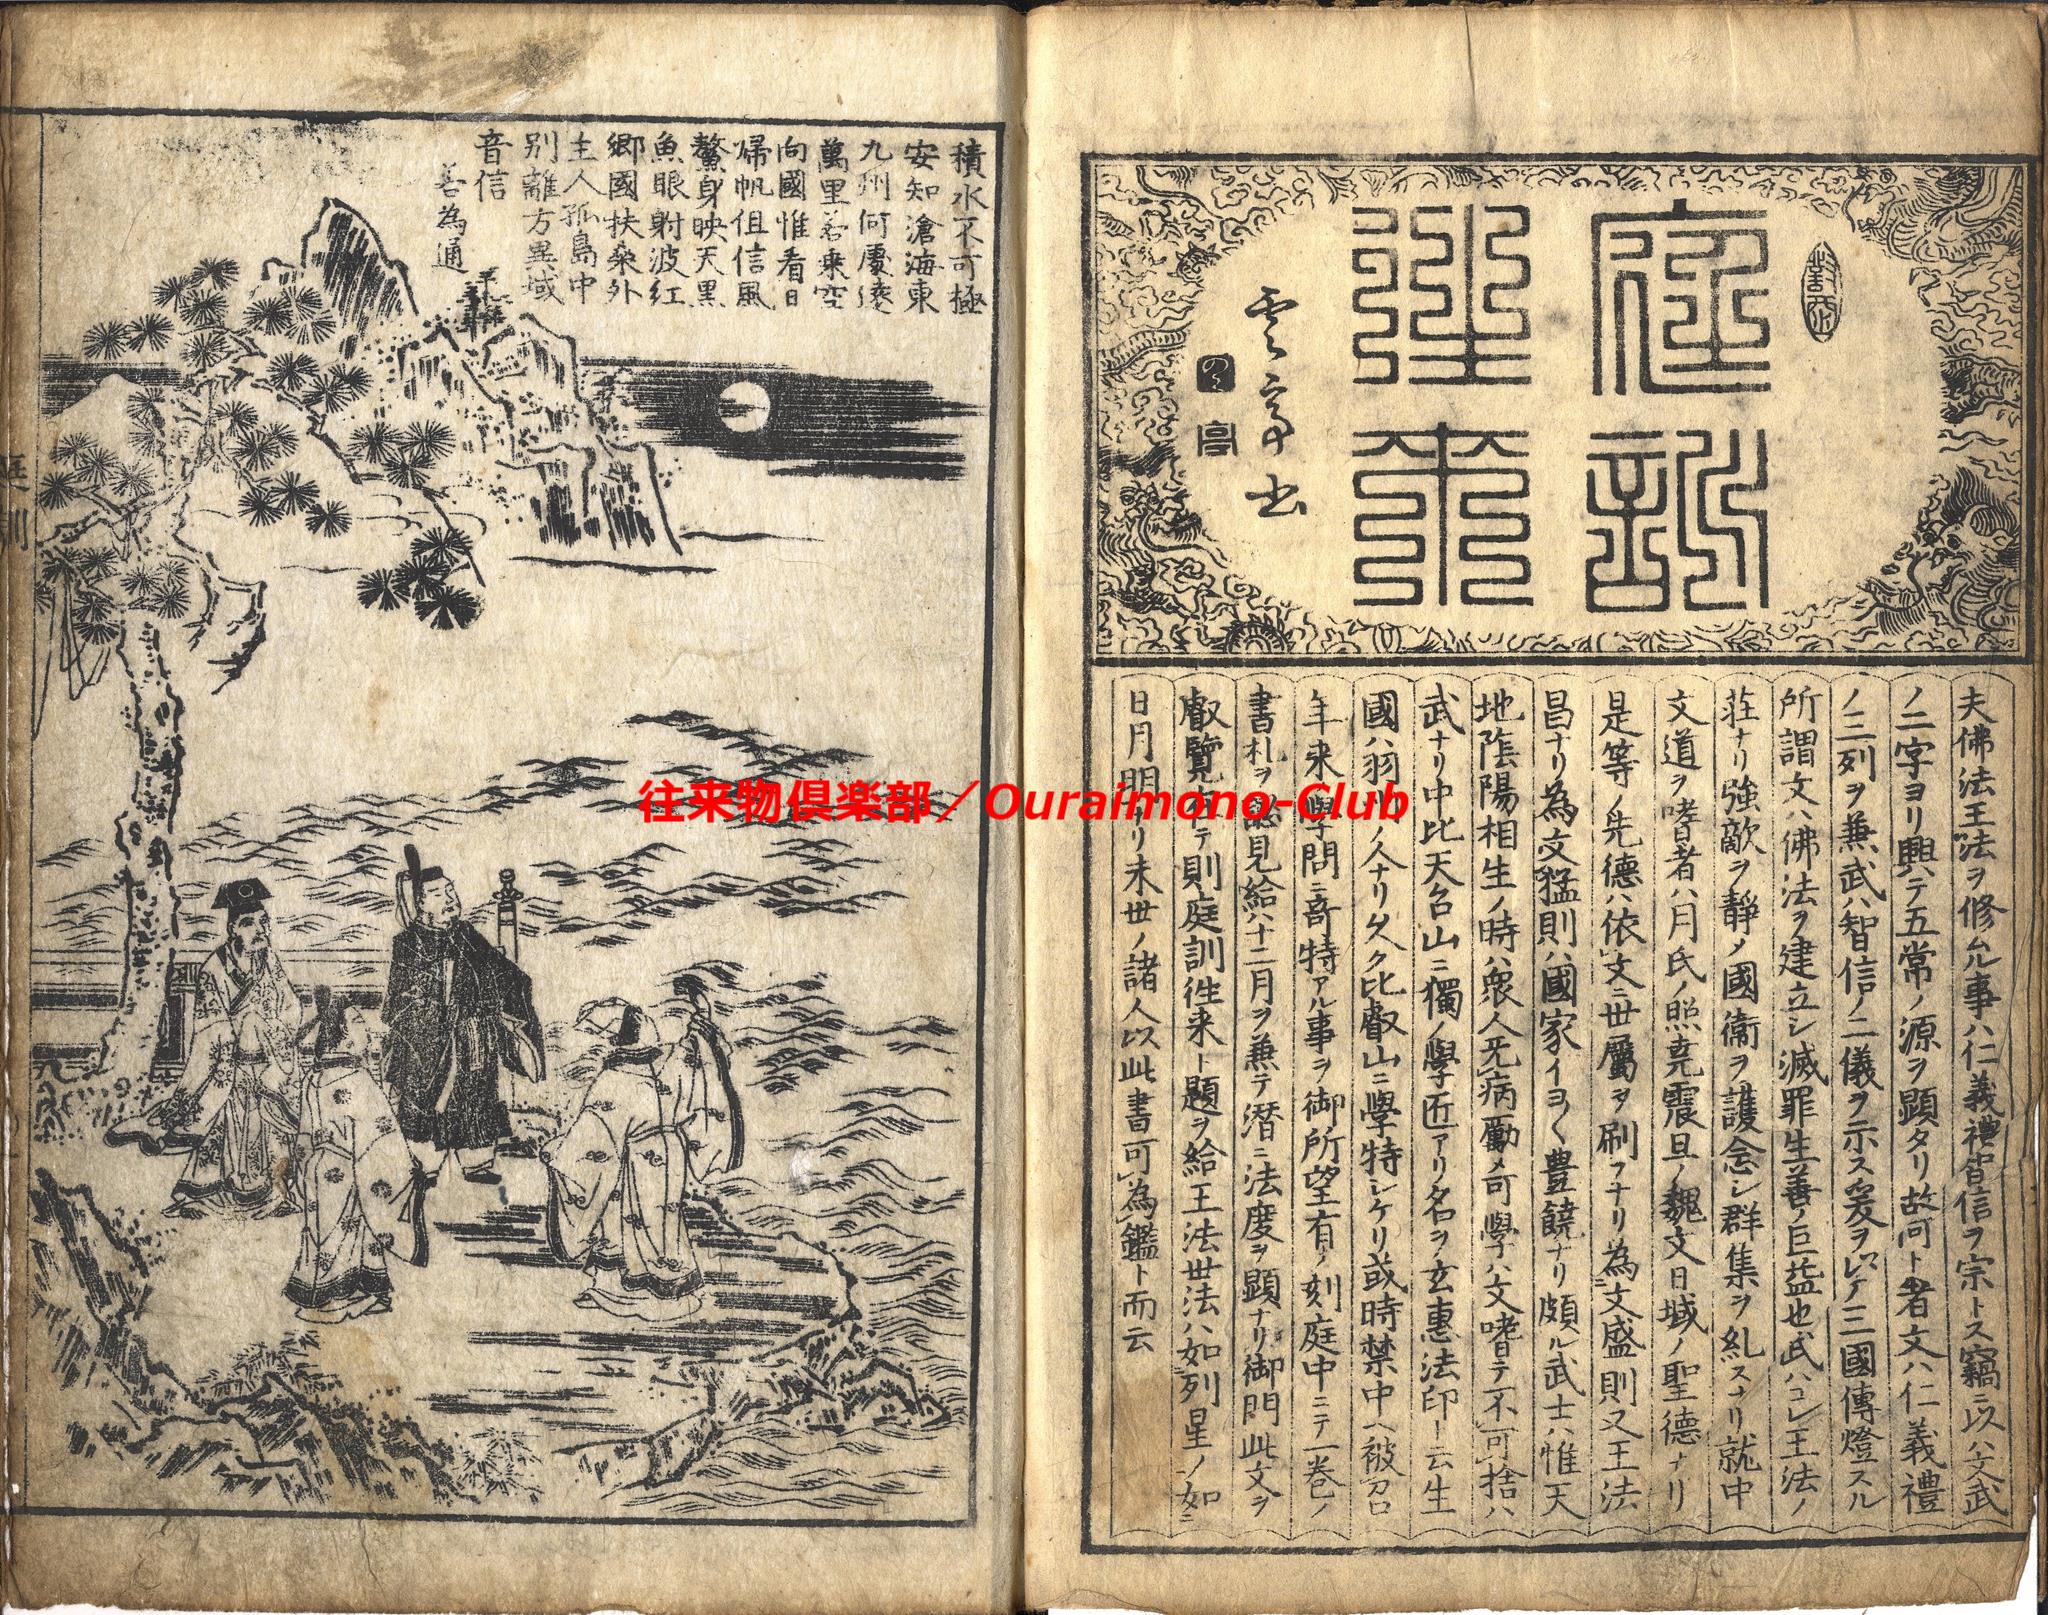 庭訓
往来
夫佛法王法ヲ修ル事ハ仁義禮智信ヲ宗トス竊ニ以ハ文武
ノ二字ヨリ興テ五常ノ源ヲ顕タリ故何ト者文ハ仁義禮
ノ三列ヲ兼武ハ智信ノ二儀ヲ示ス爰ヲ以テ三國傳燈スル
所謂文ハ佛法ヲ建立シ滅罪生善ノ巨益也武ハコレ王法ノ
荘ナリ強敵ヲ静メ國衛ヲ護念シ群集ヲ糺スナリ就中
文道ヲ嗜者ハ月氏ノ照堯震旦ノ魏文日域ノ聖德ナリ
是等ノ先德ハ依文ニ世屬ヲ刷フナリ為文盛則又王法
昌ナリ為文猛則ハ國家イヨ〱豊饒ナリ頗ル武士ハ惟天
地陰陽相生ノ時ハ衆人无病勵メ可學ハ文嗜テ不可捨ハ
武ナリ中比天台山ニ獨ノ學匠アリ名ヲ玄惠法印ト云生
國ハ羽州ノ人ナリ久ク比叡山ニ學特シケリ或時禁中ヘ被召
年来學問ニ奇特アル事ヲ御所望有ノ刻庭中ニテ一巻ノ
書札ヲ認見給ハ十二月ヲ兼テ潜ニ法度ヲ顕ナリ御門此文ヲ
叡覧有テ則庭訓往来ト題ヲ給王法世法ハ如列星ノ如ニ
日月明ナリ末世ノ諸人以此書可為鑑ト而云
積水不可極
安知滄海東
九州何處遠
萬里若乗空
向國惟看日
帰帆但信風
鰲身映天黒
魚眼射波紅
郷國扶桑外
主人孤島中
別離方異域
音信
若為通
庭訓
往来物倶楽部／Ouraimono-Club